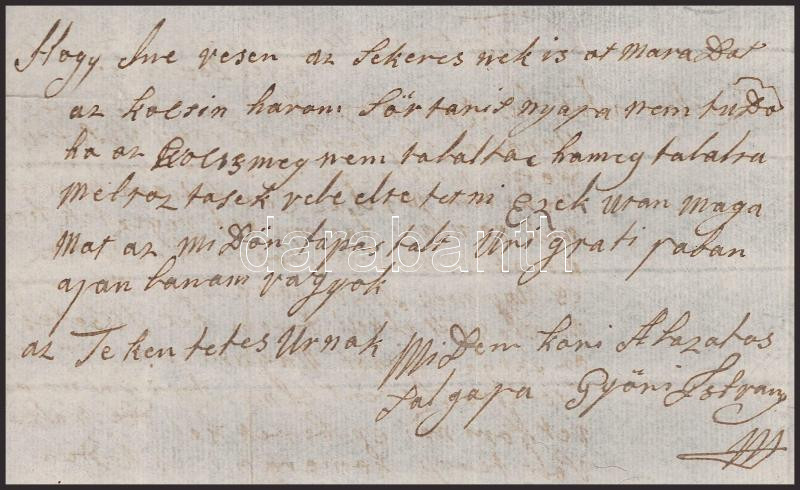 Hogy Ime vesen az Sekeres nek is ot maradot
az kocsin harom Sörtaris nyaja nem tudo
ha az kocsis meg nem talaltac ha meg talalta
Meltoz tasek vele elre terni Ezek utan maga
mat az miDön tapas talt Uri grati jaban
ajan lanam vagyok
az Te ken tetes Urnak MiDem kori Alazatos
Salgaja Györi Istvan
darabanth